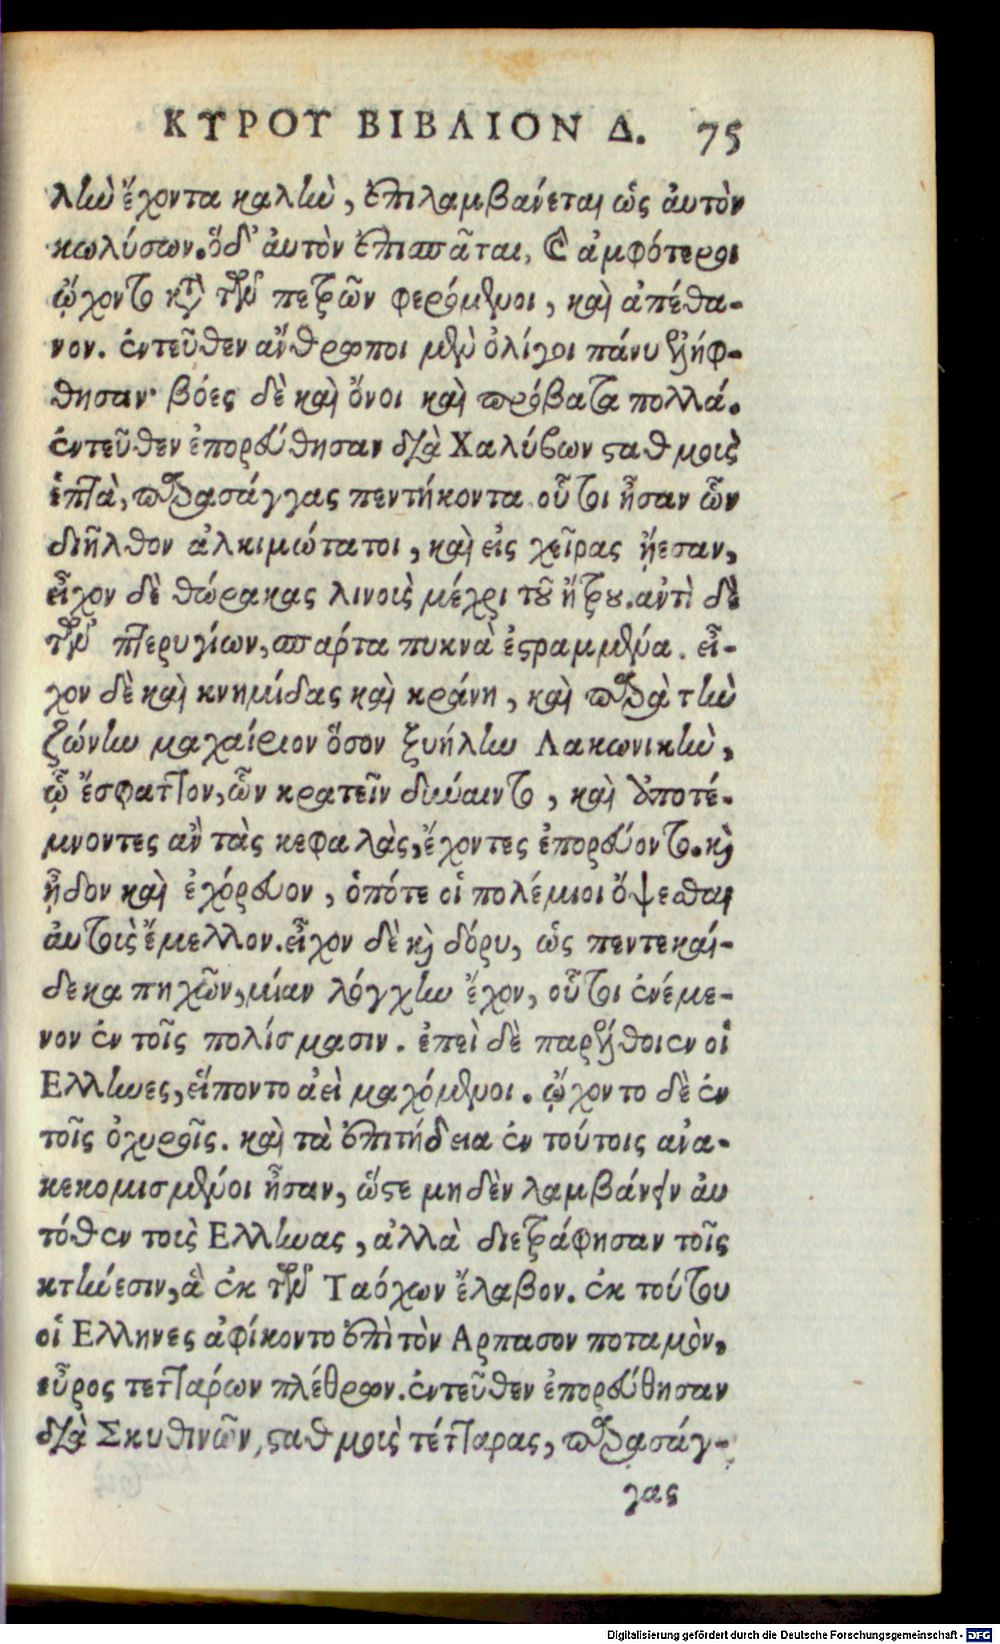 ΚΥΡΟΥ ΒΙΒΛΙΟΝ Δ. 75
λὴν ἔχοντα καλὴν, ἐπιλαμβάνεται ὡς ἀυτὸν
κωλύσων. ὅδ' ἀυτὸν ἐπισπᾶται, καὶ ἀμφότεροι
ᾤχοντο κατὰ τῶν πετρῶν φερόμενοι, καὶ ἀπέθα-
νον. ἐντεῦθεν ἄνθρωποι μὲν ὀλίγοι πάνυ ἐλήφ-
θησαν· βόες δὲ καὶ ὄνοι καὶ πρόβατα πολλά.
ἐντεῦθεν ἐπορεύθησαν διὰ Χαλύβων σταθμοὺς
ἑπτὰ, παρασάγγας πεντήκοντα. οὗτοι ἦσαν ὧν
διῆλθον ἀλκιμώτατοι, καὶ εἰς χεῖρας ᾔεσαν,
εἶχον δὲ θώρακας λινοῦς μέχρι τοῦ ἤτρου. αντὶ δὲ
τῶν πτερυγίων, σπάρτα πυκνὰ ἐστραμμένα. εἶ-
χον δὲ καὶ κνημίδας καὶ κράνη, καὶ παρὰ τὴν
ζώνην μαχαίριον ὅσον ξυήλην Λακωνικὴν,
ᾧ ἔσφαττον, ὧν κρατεῖν δύναιντο, καὶ ἀποτέ-
μνοντες ἂν τὰς κεφαλὰς, ἔχοντες ἐπορεύοντο. καὶ
ᾖδον καὶ ἐχόρευον, ὁπότε οἱ πολέμιοι ὄψεσθαι
ἀυτοὺς ἔμελλον. εἶχον δὲ καὶ δόρυ, ὡς πεντεκαί-
δεκα πηχῶν, μίαν λόγχην ἔχον, οὗτοι ἐνέμε-
νον ἐν τοῖς πολίσμασιν. ἐπεὶ δὲ παρέλθοιεν οἱ
Ελληνες, εἵποντο ἀεὶ μαχόμενοι. ᾤχοντο δὲ ἐν
τοῖς ὀχυροῖς. καὶ τὰ ἐπιτήδεια ἐν τούτοις ανα-
κεκομισμένοι ἦσαν, ὥστε μηδὲν λαμβάνειν ἀυ
τόθεν τοὺς Ελληνας, ἀλλὰ διετράφησαν τοῖς
κτήνεσιν, ἃ ἐκ τῶν Ταόχων ἔλαβον. ἐκ τούτου
οἱ Ελληνες ἀφίκοντο ἐπὶ τὸν Αρπασον ποταμὸν,
εὖρος τεττάρων πλέθρων. ἐντεῦθεν ἐπορεύθησαν
διὰ Σκυθινῶν, σταθμοὺς τέτταρας, παρασάγ-
γας
Digitalisierung gefördert durch die Deutsche Forschungsgemeinschaft - DFG